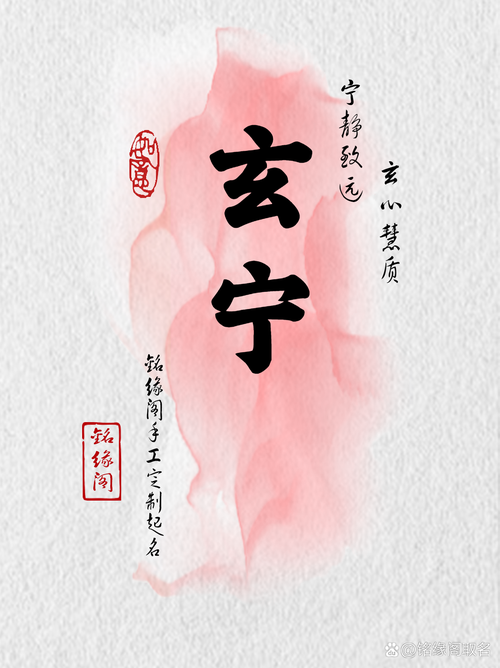 玄心慧质
宁静致远
玄宁
如意
銘缘阁手工定制起名
銘缘阁
@铭缘阁取名